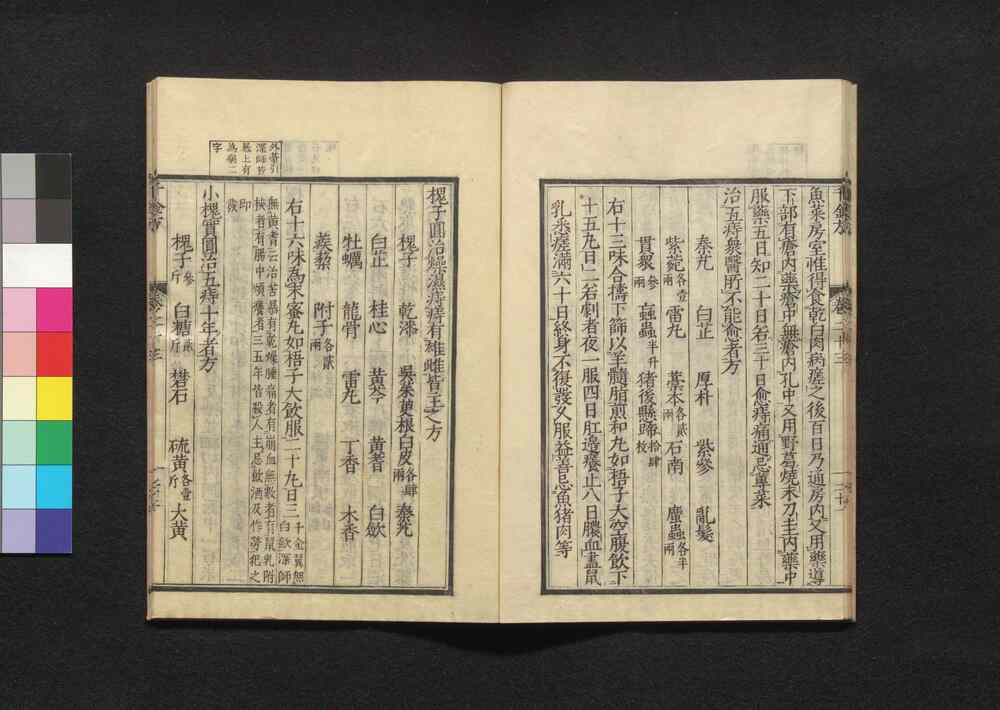 魚菜房室惟得食乾白肉病瘥之後百日乃通房內又用藥導
下部有瘡內藥瘡中無瘡內孔中又用野葛燒末刀圭內藥中
服藥五日知二十日若三十日愈痔痛通忌蓴菜
治五痔衆醫所不能愈者方
秦艽 白芷 厚朴 紫參 亂髮
紫菀各壹兩 雷丸 藁本各貳兩 石南 䗪蟲各半兩
貫衆參兩 蝱蟲半升 猪後懸蹄拾肆枚
右十三味合擣下篩以羊髓脂煎和丸如梧子大空腹飲下
十五丸日二若劇者夜一服四日肛邊癢止八日膿血盡鼠
乳悉瘥滿六十日終身不復發久服益善忌魚猪肉等
槐子圓治䘌濕痔痔有雄雌皆主之方
槐子 乾漆 吳茱萸根白皮各肆兩 秦艽
白芷 桂心 黃芩 黃蓍 白斂
牡蠣 龍骨 雷丸 丁香 木香
蒺藜 附子各貳兩
右十六味爲末蜜丸如梧子大飲服二十九日三千金翼無白斂深師
無黃耆云治苦暴有乾燥腫痛者有崩血無數者有鼠乳附
核者有腸中煩癢者三五年皆殺人主忌飲酒及作勞犯之
即發
小槐實圓治五痔十年者方
槐子參斤 白糖貳斤 礬石 硫黃各壹斤 大黃
外臺引
深師皆
字